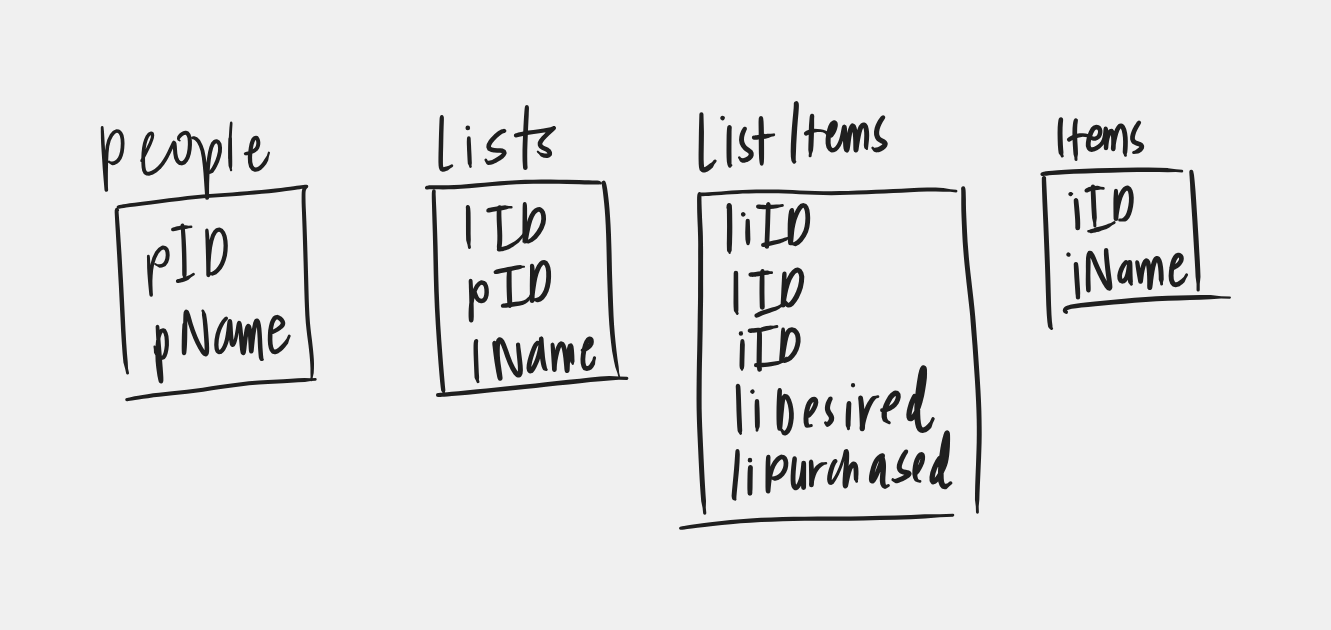 people
pID
pName
Lists
lID
pID
lName
List Items
liID
lID
iID
liDesired
liPurchased
Items
iID
iName